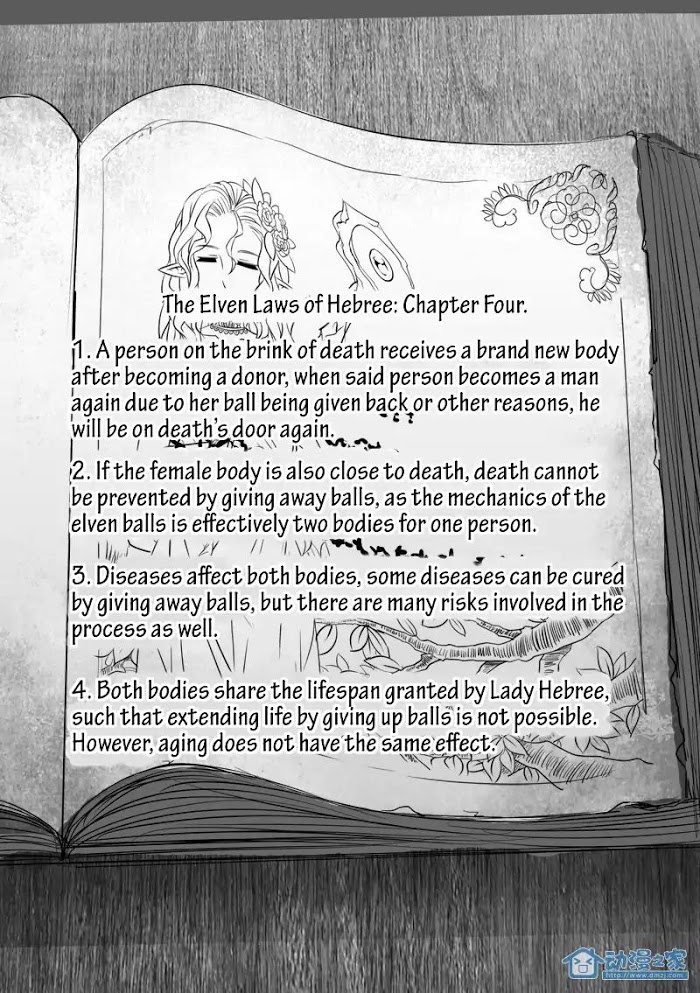 The Elven Laws of Hebree: Chapter Four.
1. A person on the brink of death receives a brand new body
after becoming a donor, when said person becomes a man
again due to her ball being given back or other reasons, he
will be on death's door again.
2. If the female body is also close to death, death cannot
be prevented by giving away balls, as the mechanics of the
elven balls is effectively two bodies for one person.
3. Diseases affect both bodies, some diseases can be cured
by giving away balls, but there are many risks involved in the
process as well.
4. Both bodies share the lifespan granted by Lady Hebree,
such that extending life by giving up balls is not possible.
However, aging does not have the same effect.
动漫之家
http://www.dmzj.com